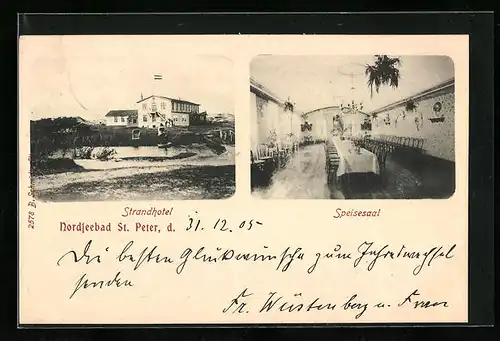 Strandhotel
Speisesaal
Nordseebad St. Peter, d. 31. 12. 05
Die besten Glückwünsche zum Jahreswechsel
senden
Fr. Wüstenberg u. Frau
2578 B.